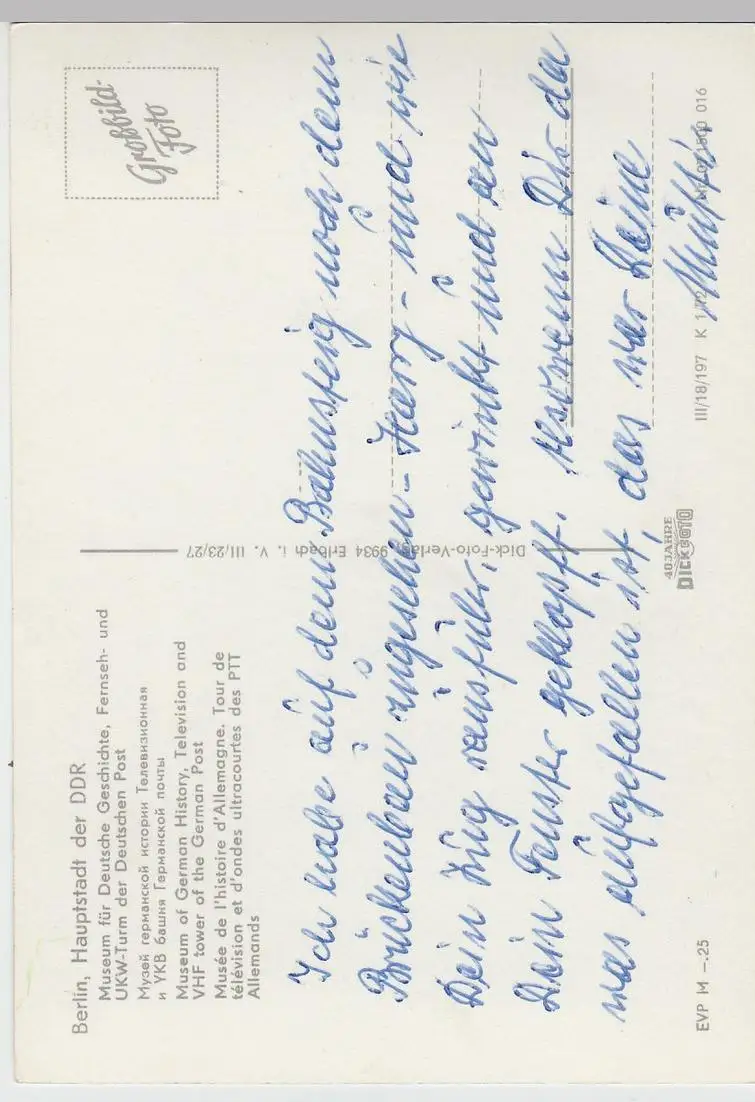 Berlin, Hauptstadt der DDR
Museum für Deutsche Geschichte, Fernseh- und
UKW-Turm der Deutschen Post
Музей германской истории Телевизионная
и УКВ башня Германской почты
Museum of German History, Television and
VHF tower of the German Post
Musée de l'histoire d'Allemagne. Tour de
télévision et d'ondes ultracourtes des PTT
Allemands
Großbild-
Foto
Dick-Foto-Verlag, 9934 Erlbach i. V. III/23/27
Ich habe auf dem Bahnsteig noch dem
Brückenbau zugesehen - Harry - und wie
Dein Zug rausfuhr, gewinkt und an
Dein Fenster geklopft. Also wenn Dir da
was aufgefallen ist, das war Deine
Mutti
EVP M –.25
40 JAHRE
DICK FOTO
III/18/197 K 1/72 016